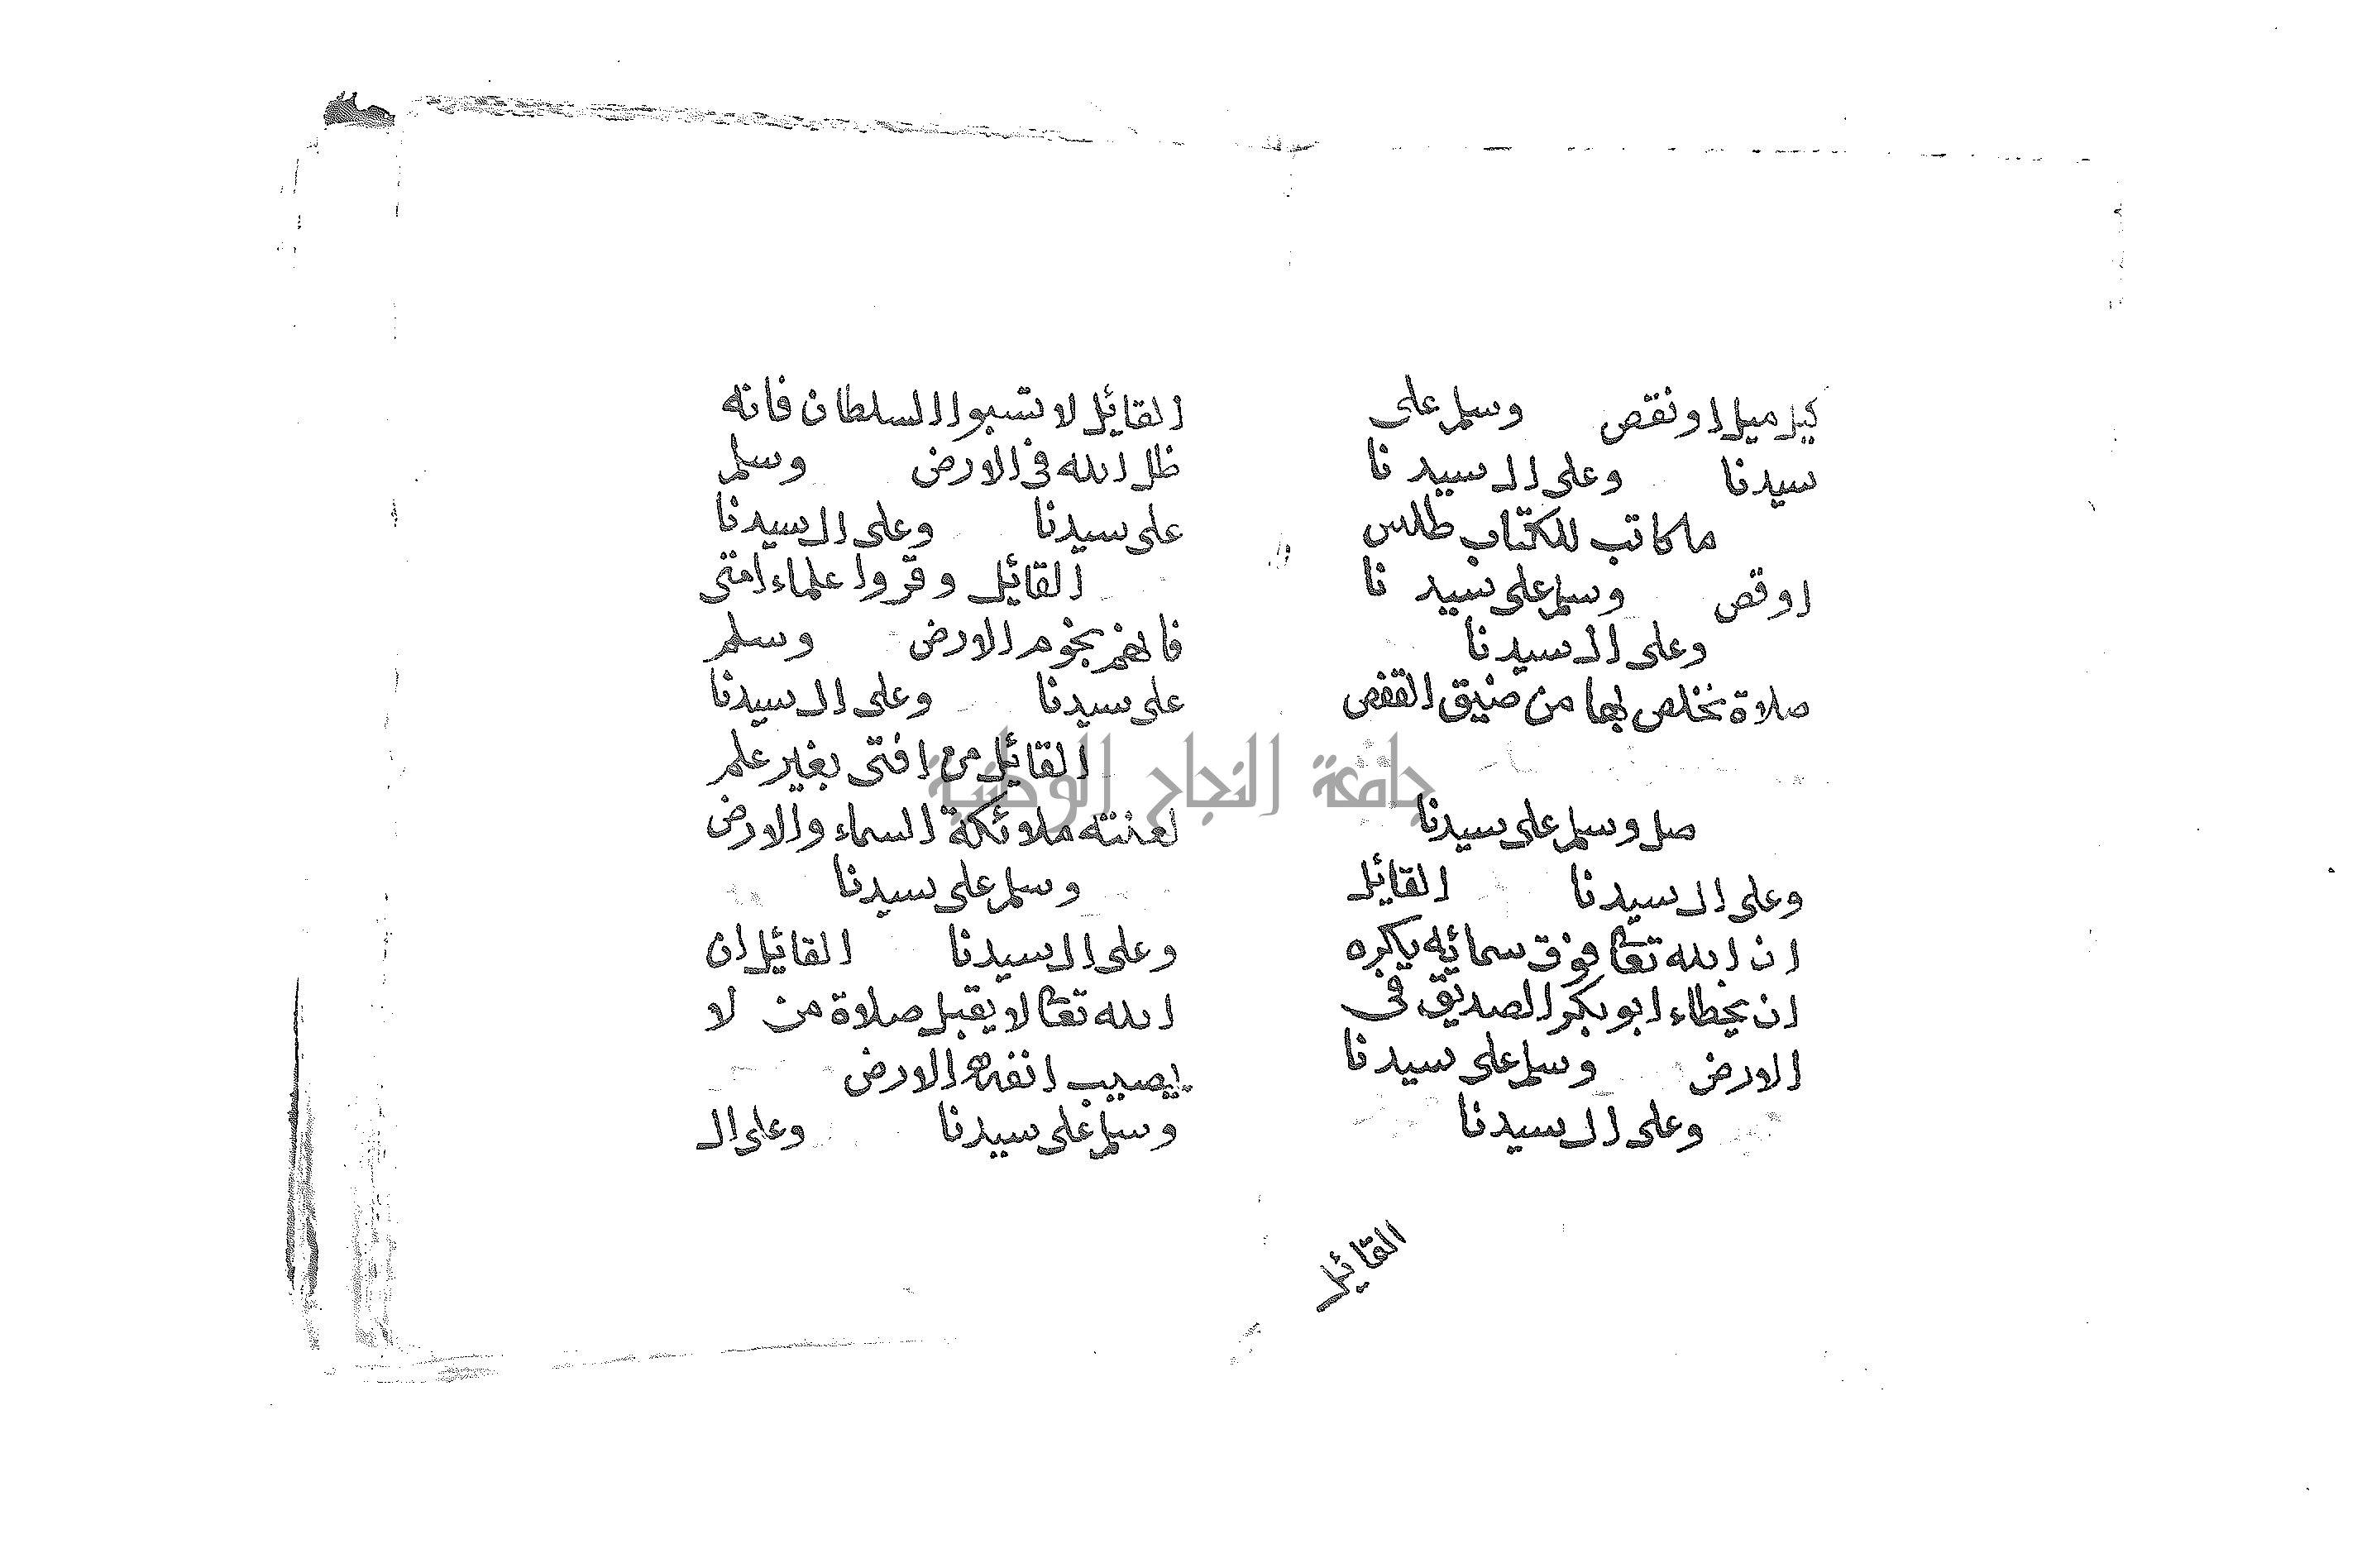 كيل ميل او نقص وسلم على
سيدنا وعلى ال سيدنا
ما كاتب للكتاب طلس
او قص وسلم على سيدنا
وعلى ال سيدنا
صلاة نخلص بها من ضيق القفص
صل وسلم على سيدنا
وعلى ال سيدنا القائل
ان الله تعا فوق سمائه يكره
ان يخطاء ابو بكر الصديق في
الارض وسلم على سيدنا
وعلى ال سيدنا
القائل
القائل لا تسبوا السلطان فانه
ظل الله في الارض وسلم
على سيدنا وعلى ال سيدنا
القائل وقروا علماء امتى
فانهم نجوم الارض وسلم
على سيدنا وعلى ال سيدنا
القائل من افتى بغير علم
لعنته ملائكة السماء والارض
وسلم على سيدنا
وعلى ال سيدنا القائل ان
الله تعا لا يقبل صلاة من لا
يصيب انفه الارض
وسلم على سيدنا وعلى ال
جامعة النجاح الوطنية